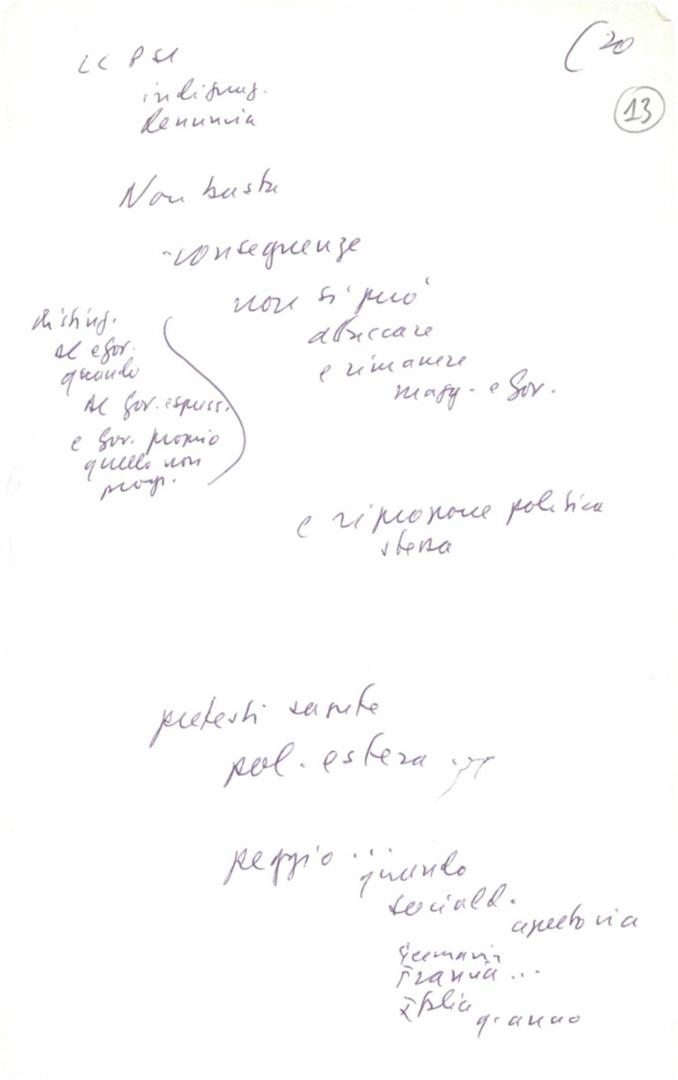 (20
13
Il PSI
indignaz.
denuncia
Non basta
conseguenze
non si può
abiccare
e rimanere
magg. e Gov.
disting.
e Gov.
quando
Gov. espress.
e Gov. proprio
quello non
progr.
e ripropone politica
stessa
pretesti sanità
pol. estera
peggio ... quando
sociald.
aperto via
Germania
Francia ...
Italia